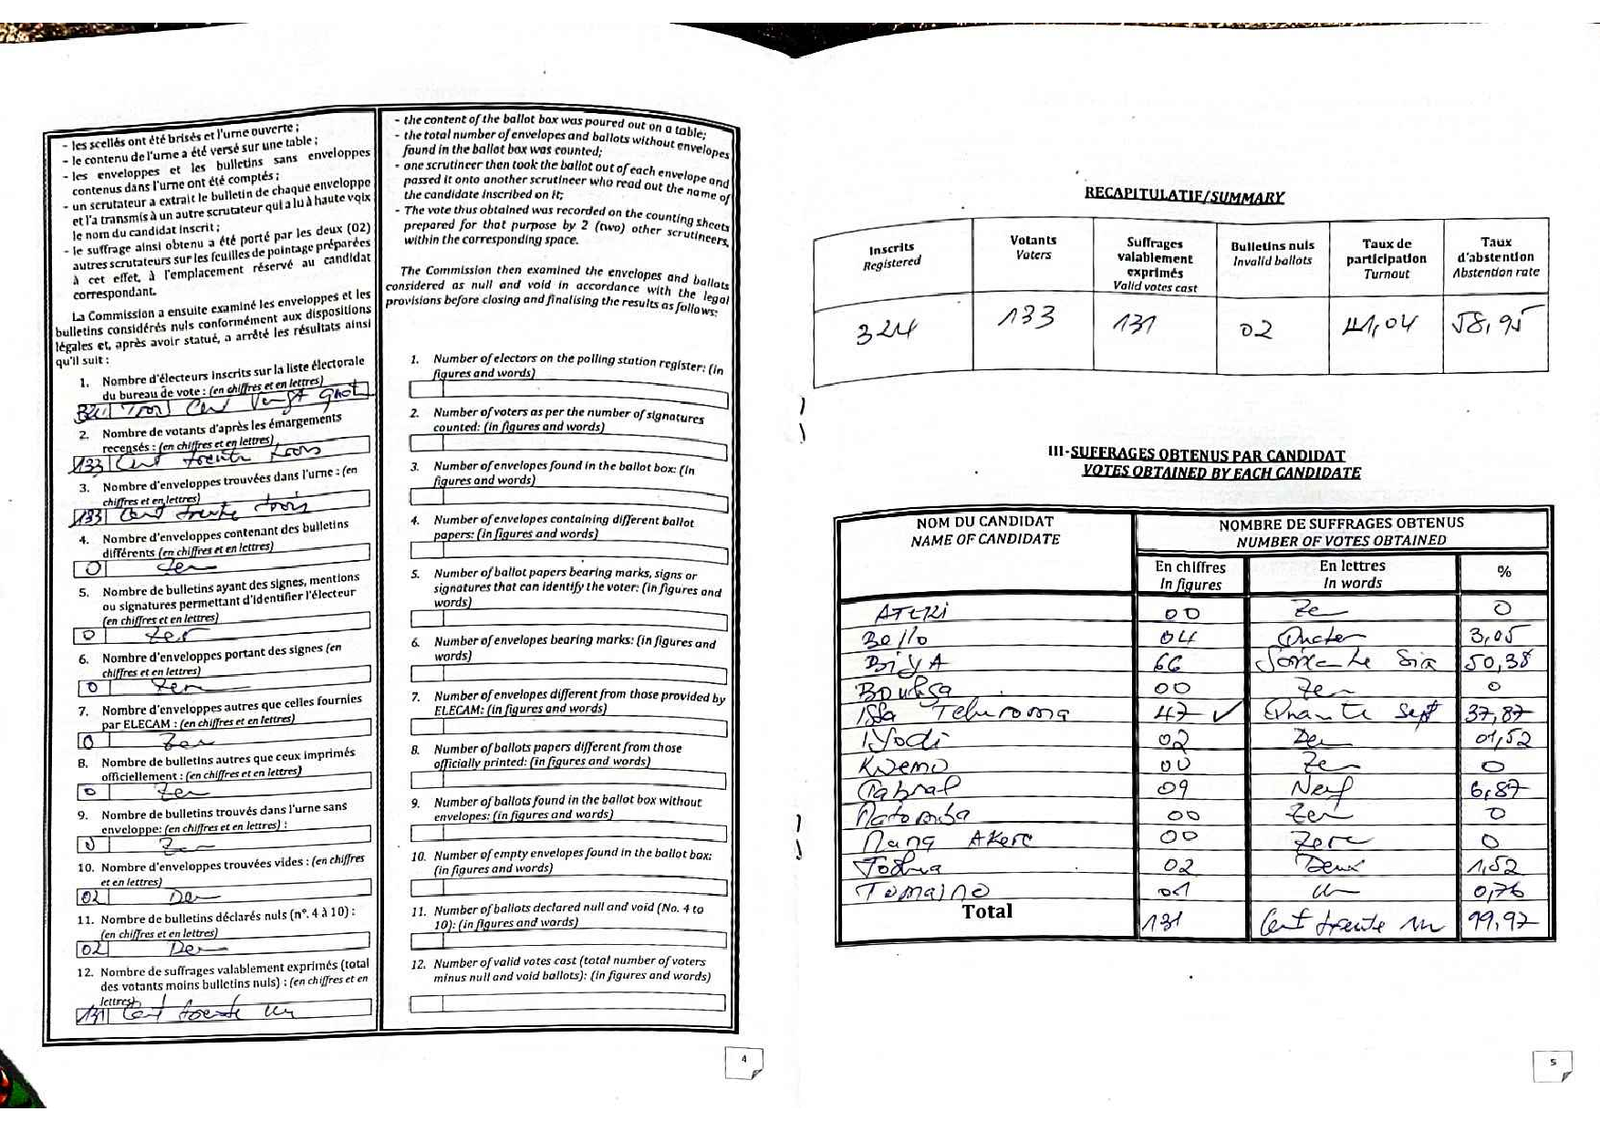 - les scellés ont été brisés et l'urne ouverte ;
- le contenu de l'urne a été versé sur une table ;
- les enveloppes et les bulletins sans enveloppes
contenus dans l'urne ont été comptés ;
- un scrutateur a extrait le bulletin de chaque enveloppe
et l'a transmis à un autre scrutateur qui a lu à haute voix
le nom du candidat inscrit ;
- le suffrage ainsi obtenu a été porté par les deux (02)
autres scrutateurs sur les feuilles de pointage préparées
à cet effet, à l'emplacement réservé au candidat
correspondant.
La Commission a ensuite examiné les enveloppes et les
bulletins considérés nuls conformément aux dispositions
légales et, après avoir statué, a arrêté les résultats ainsi
qu'il suit :
1. Nombre d'électeurs inscrits sur la liste électorale
du bureau de vote : (en chiffres et en lettres)
324 Trois Cent Vingt quatre
2. Nombre de votants d'après les émargements
recensés : (en chiffres et en lettres)
133 Cent trente trois
3. Nombre d'enveloppes trouvées dans l'urne : (en
chiffres et en lettres)
133 Cent trente trois
4. Nombre d'enveloppes contenant des bulletins
différents (en chiffres et en lettres)
0 Zero
5. Nombre de bulletins ayant des signes, mentions
ou signatures permettant d'identifier l'électeur
(en chiffres et en lettres)
0 Zero
6. Nombre d'enveloppes portant des signes (en
chiffres et en lettres)
0 Zero
7. Nombre d'enveloppes autres que celles fournies
par ELECAM : (en chiffres et en lettres)
0 Zero
8. Nombre de bulletins autres que ceux imprimés
officiellement : (en chiffres et en lettres)
0 Zero
9. Nombre de bulletins trouvés dans l'urne sans
enveloppe: (en chiffres et en lettres) :
0 Zero
10. Nombre d'enveloppes trouvées vides : (en chiffres
et en lettres)
02 Deux
11. Nombre de bulletins déclarés nuls (n°. 4 à 10) :
(en chiffres et en lettres)
02 Deux
12. Nombre de suffrages valablement exprimés (total
des votants moins bulletins nuls) : (en chiffres et en
lettres)
131 Cent trente un
- the content of the ballot box was poured out on a table;
- the total number of envelopes and ballots without envelopes
found in the ballot box was counted;
- one scrutineer then took the ballot out of each envelope and
passed it onto another scrutineer who read out the name of
the candidate inscribed on it;
- The vote thus obtained was recorded on the counting sheets
prepared for that purpose by 2 (two) other scrutineers,
within the corresponding space.
The Commission then examined the envelopes and ballots
considered as null and void in accordance with the legal
provisions before closing and finalising the results as follows:
1. Number of electors on the polling station register: (in
figures and words)
2. Number of voters as per the number of signatures
counted: (in figures and words)
3. Number of envelopes found in the ballot box: (in
figures and words)
4. Number of envelopes containing different ballot
papers: (in figures and words)
5. Number of ballot papers bearing marks, signs or
signatures that can identify the voter: (in figures and
words)
6. Number of envelopes bearing marks: (in figures and
words)
7. Number of envelopes different from those provided by
ELECAM: (in figures and words)
8. Number of ballots papers different from those
officially printed: (in figures and words)
9. Number of ballots found in the ballot box without
envelopes: (in figures and words)
10. Number of empty envelopes found in the ballot box:
(in figures and words)
11. Number of ballots declared null and void (No. 4 to
10): (in figures and words)
12. Number of valid votes cast (total number of voters
minus null and void ballots): (in figures and words)
4
RECAPITULATIF/SUMMARY
Inscrits Registered Votants Voters Suffrages valablement exprimés Valid votes cast Bulletins nuls Invalid ballots Taux de participation Turnout Taux d'abstention Abstention rate
324 133 131 02 41,04 58,95
III-SUFFRAGES OBTENUS PAR CANDIDAT
VOTES OBTAINED BY EACH CANDIDATE
NOM DU CANDIDAT NOMBRE DE SUFFRAGES OBTENUS
NAME OF CANDIDATE NUMBER OF VOTES OBTAINED
En chiffres En lettres %
In figures In words
ATEKI 00 Zero 0
Bello 04 Quatre 3,05
BiYA 66 Soixante Six 50,38
Bougha 00 Zero 0
Issa Tchiroma 47 Quarante sept 37,87
Iyodi 02 01,52
Kwemo 00 Zero 0
Cabral 09 Neuf 6,87
Matomba 00 Zero 0
Mang AKere 00 Zero 0
Joshua 02 Deux 1,52
Tomaino 01 un 0,76
Total 131 Cent trente un 99,97
5